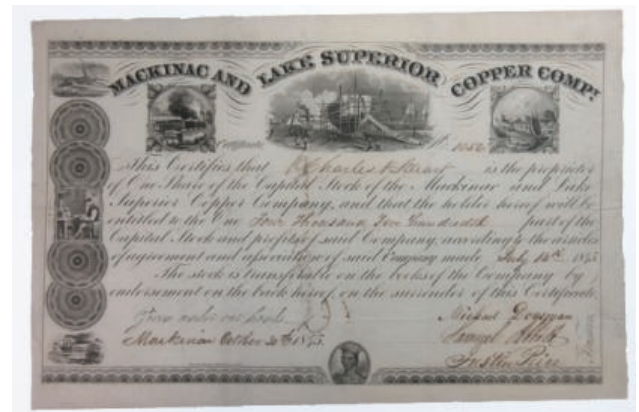 MACKINAC AND LAKE SUPERIOR COPPER COMPY.
Certificate No. 1056
This Certifies that Charles Stuart is the proprietor
of One Share of the Capital Stock of the Mackinac and Lake
Superior Copper Company, and that the holder hereof will be
entitled to the One Four Thousand Two Hundredth part of the
Capital Stock and profits of said Company, according to the articles
of agreement and association of said Company made July 14th 1845
The stock is transferable on the books of the Company by
endorsement on the back hereof, on the surrender of this Certificate.
Mackinac October 30th 1845
Michael Dousman
Samuel Abbott
Justin Rice
Trustees